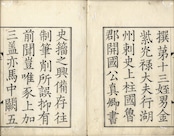 撰第十三姪男金
紫光祿大夫行湖
州刺史上柱國魯
郡開國公真卿書
史籀之興備存往
制筆削所誤抑有
前聞豈唯豕上加
三蓋亦馬中闕五